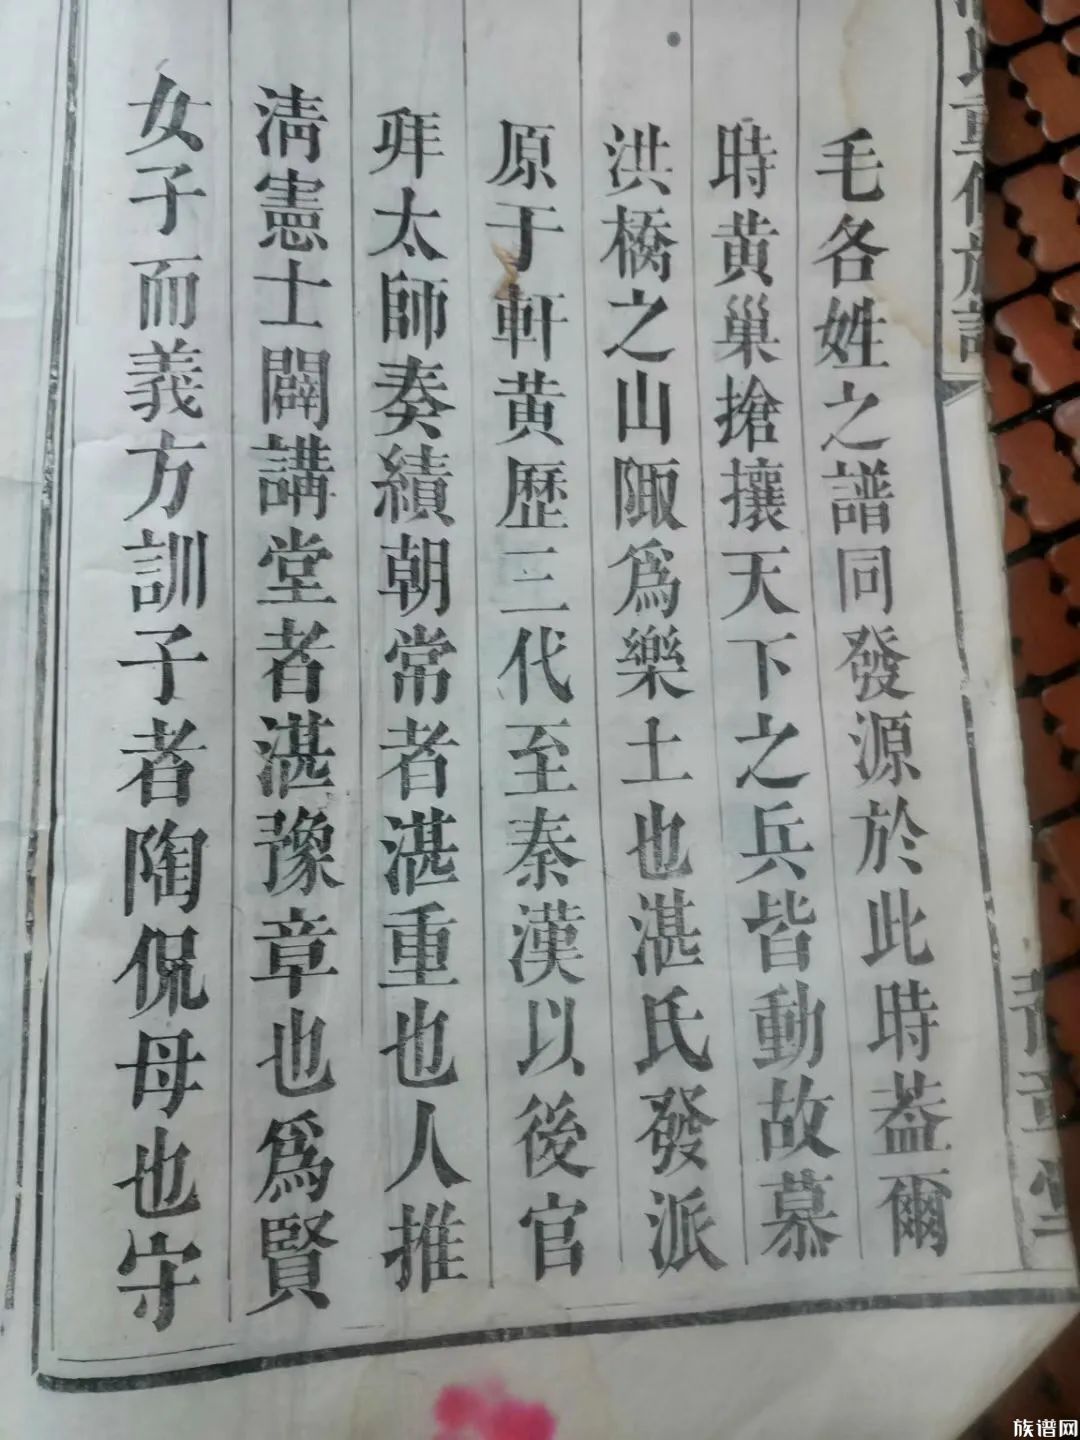 氏重修族譜
堂
毛各姓之譜同發源於此時葢爾
時黄巢搶攘天下之兵皆動故慕
洪橋之山陬為樂土也湛氏發派
原于軒黄歷三代至秦漢以後官
拜太師奏績朝常者湛重也人推
淸憲士闢講堂者湛豫章也為賢
女子而義方訓子者陶侃母也守
族谱网